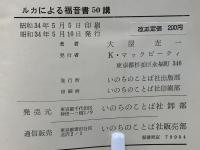 ルカによる福音書50講
昭和34年5月5日印刷
昭和34年5月10日発行
改正定価 200円
著者 大屋左一
発行者 K・マックビーティ
東京都杉並区永福町346
発行所 いのちのことば社出版部
印刷所 いのちのことば社印刷部
発売元 いのちのことば社卸部
通信販売 いのちのことば社販売部